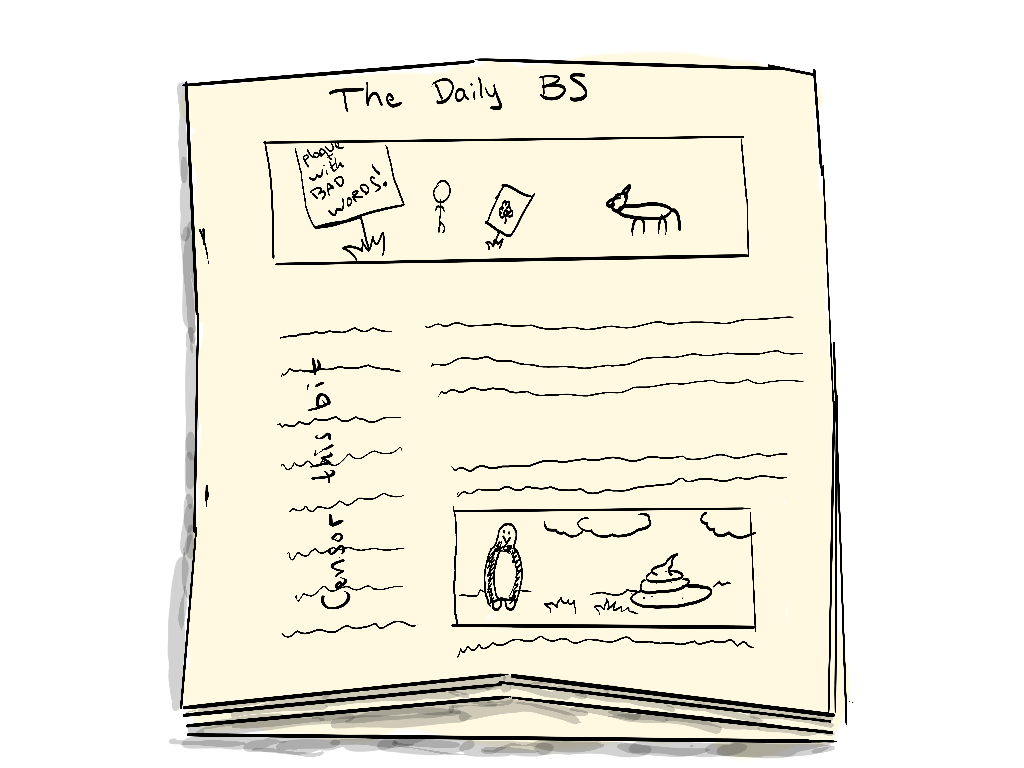 The Daily BS
plaque
with
BAD
WORDS!
Censor this bit